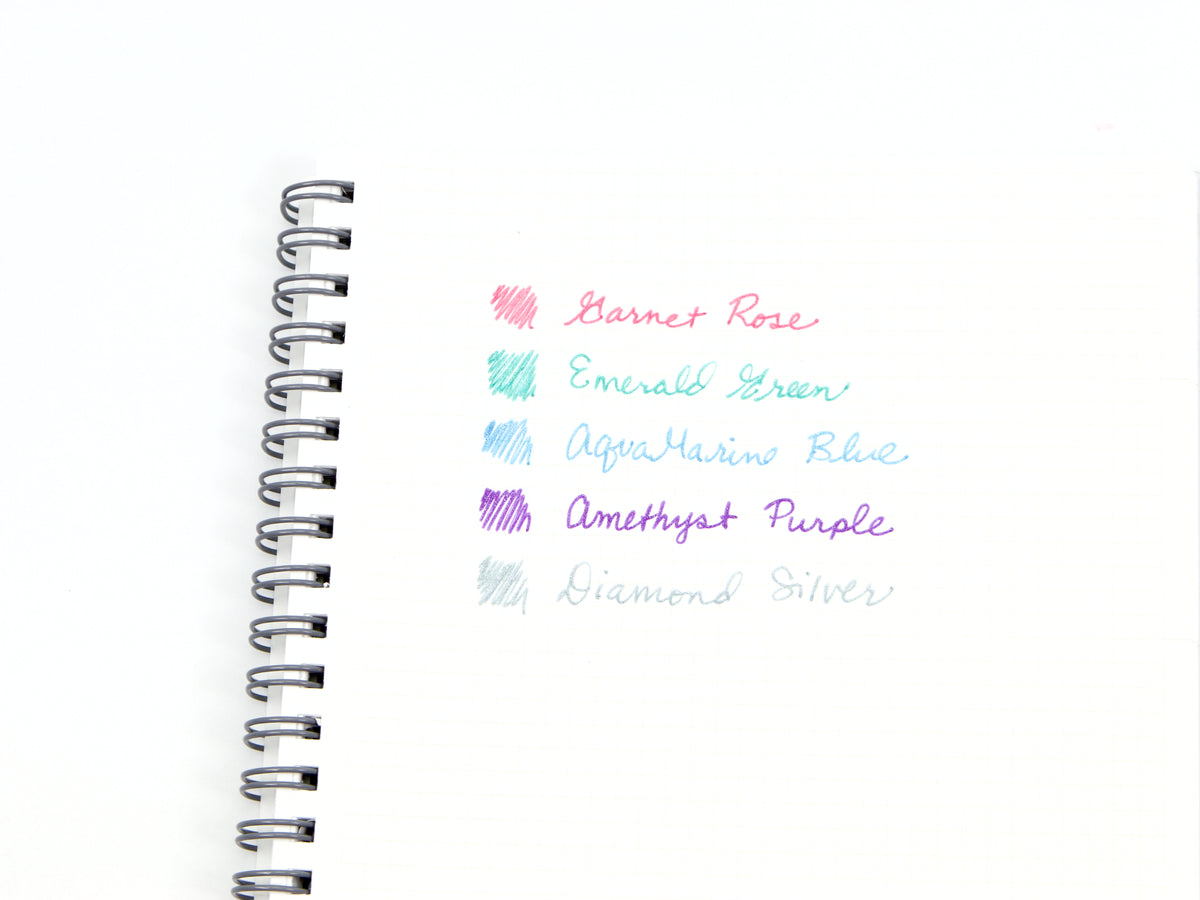 Garnet Rose
Emerald Green
AquaMarine Blue
Amethyst Purple
Diamond Silver